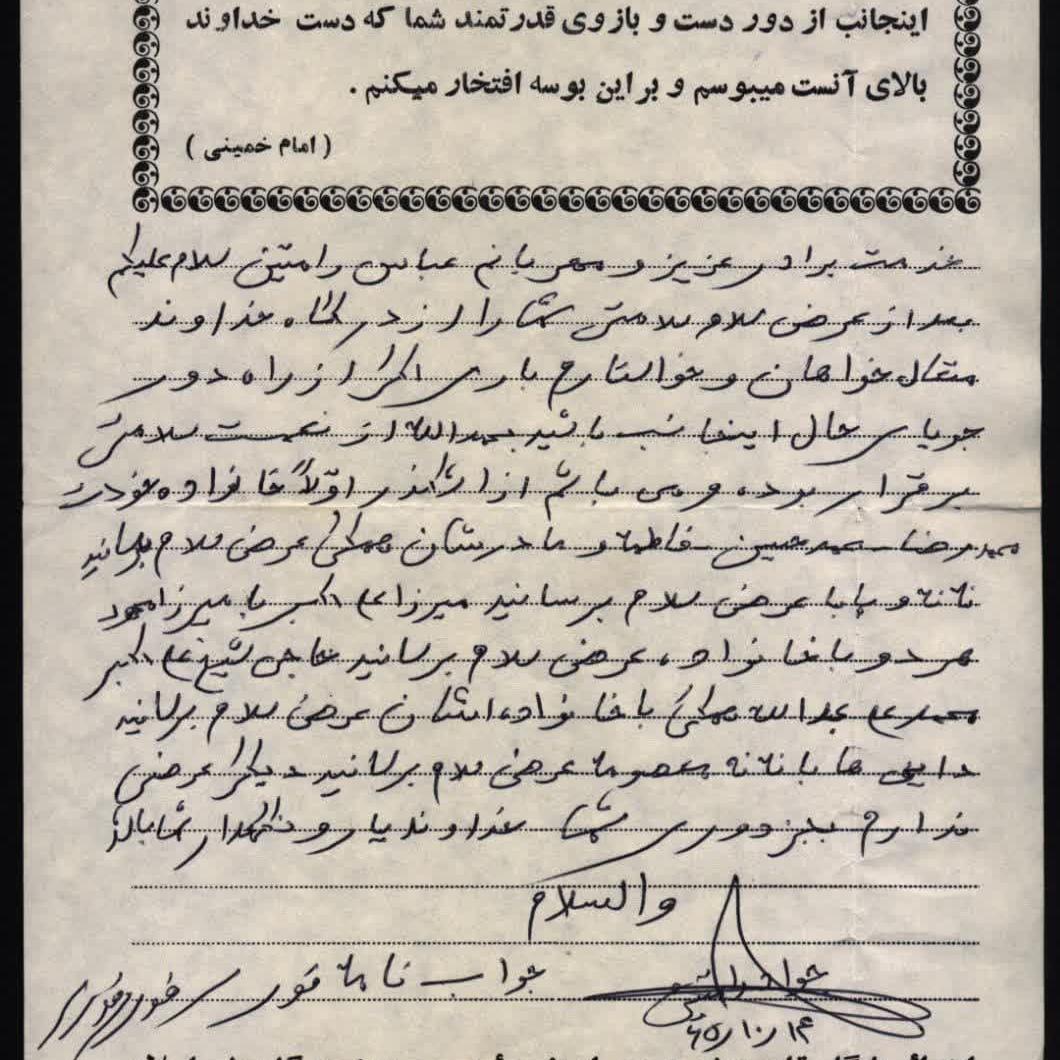 اینجانب از دور دست و بازوی قدرتمند شما که دست خداوند
بالای آنست میبوسم و براین بوسه افتخار میکنم .
( امام خمینی )
خدمت برادر عزیز و مهربانم عباس رامتین سلام علیکم
بعد از عرض سلام سلامتی شما را از درگاه خداوند
متعال خواهان و خواستارم باری اگر از راه دور
جویای حال اینجانب باشید بحمدالله از نعمت سلامتی
برقرار بوده و می باشم اولاً خانواده خودت
محمدرضا محمدحسین فاطمه و مادرشان همگی عرض سلام برسانید
ننه و بابا عرض سلام برسانید میرزا علی اکبر با میرزا محمود
هر دو با خانواده عرض سلام برسانید حاجی شیخ علی اکبر
محمدعلی عبدالله همگی با خانواده ایشان عرض سلام برسانید
دایی ها با ننه معصومه عرض سلام برسانید دیگر عرضی
ندارم بجز دوری شما خداوند یار و نگهدار شما باشد
والسلام
جواد رامتین
جواب نامه فوری فوری فوری
۶۵/۱۰/۱۴